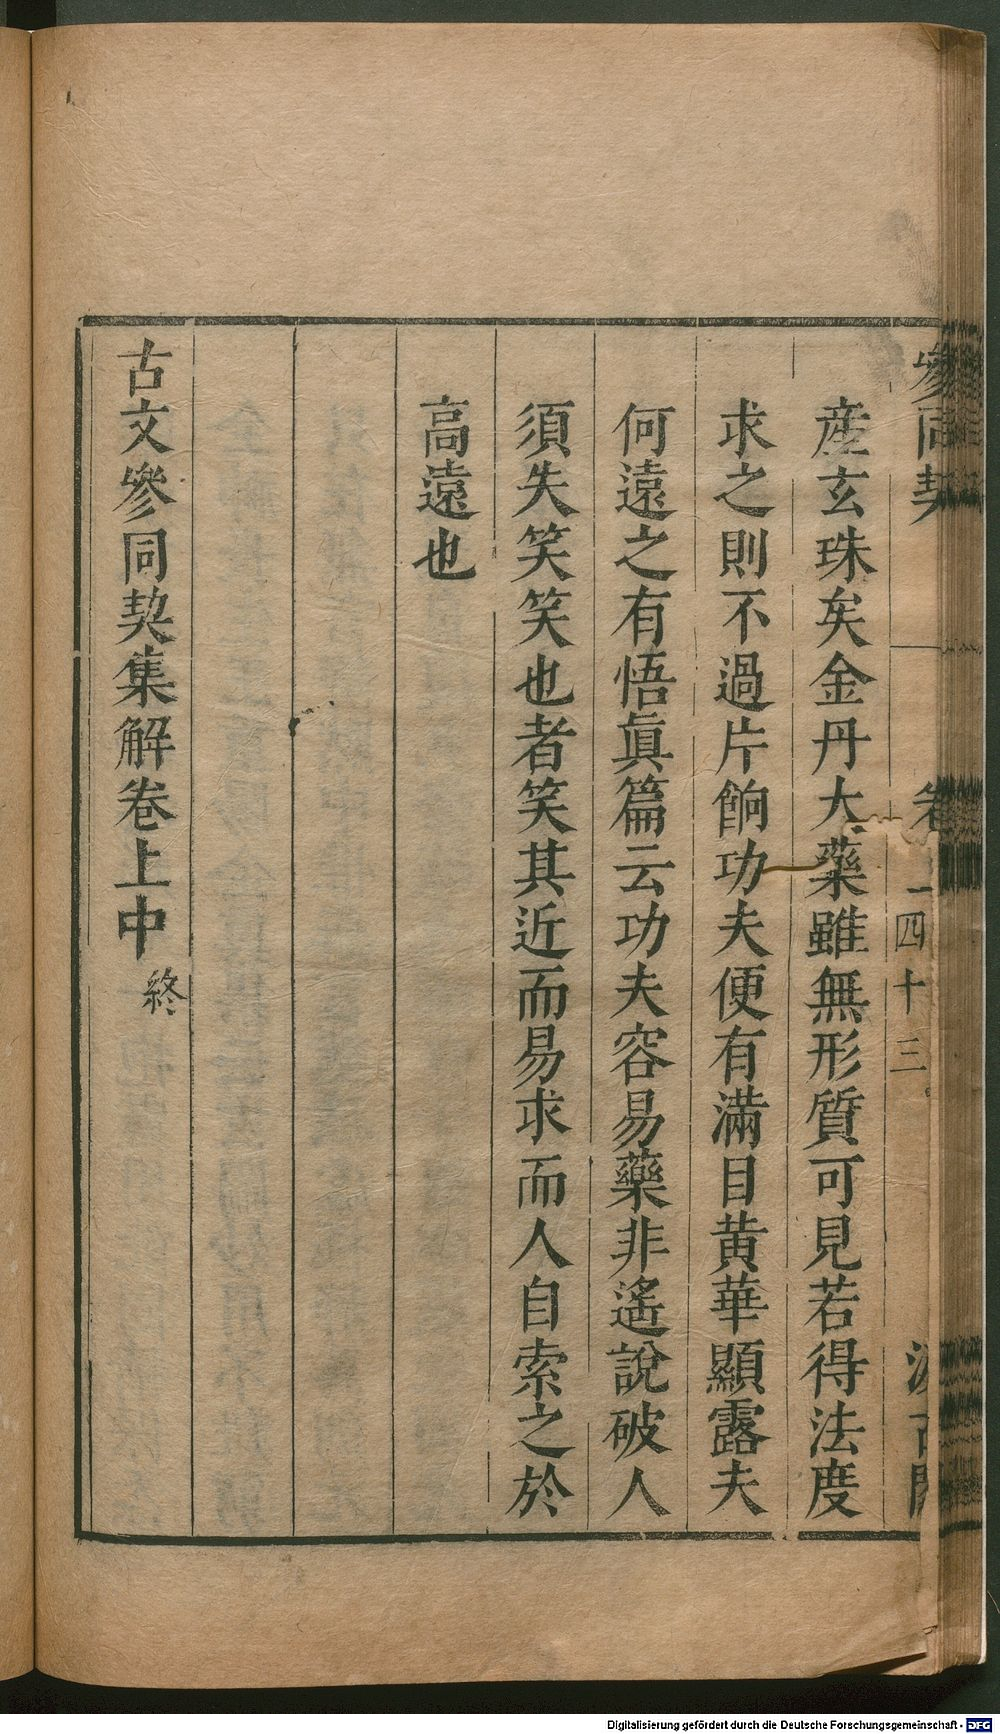 參同契 卷 一 四十三 汲古閣
産玄珠矣金丹大藥雖無形質可見若得法度
求之則不過片餉功夫便有滿目黄華顯露夫
何遠之有悟眞篇云功夫容易藥非遙說破人
須失笑笑也者笑其近而易求而人自索之於
高遠也
古文參同契集解卷上中 終
Digitalisierung gefördert durch die Deutsche Forschungsgemeinschaft - DFG